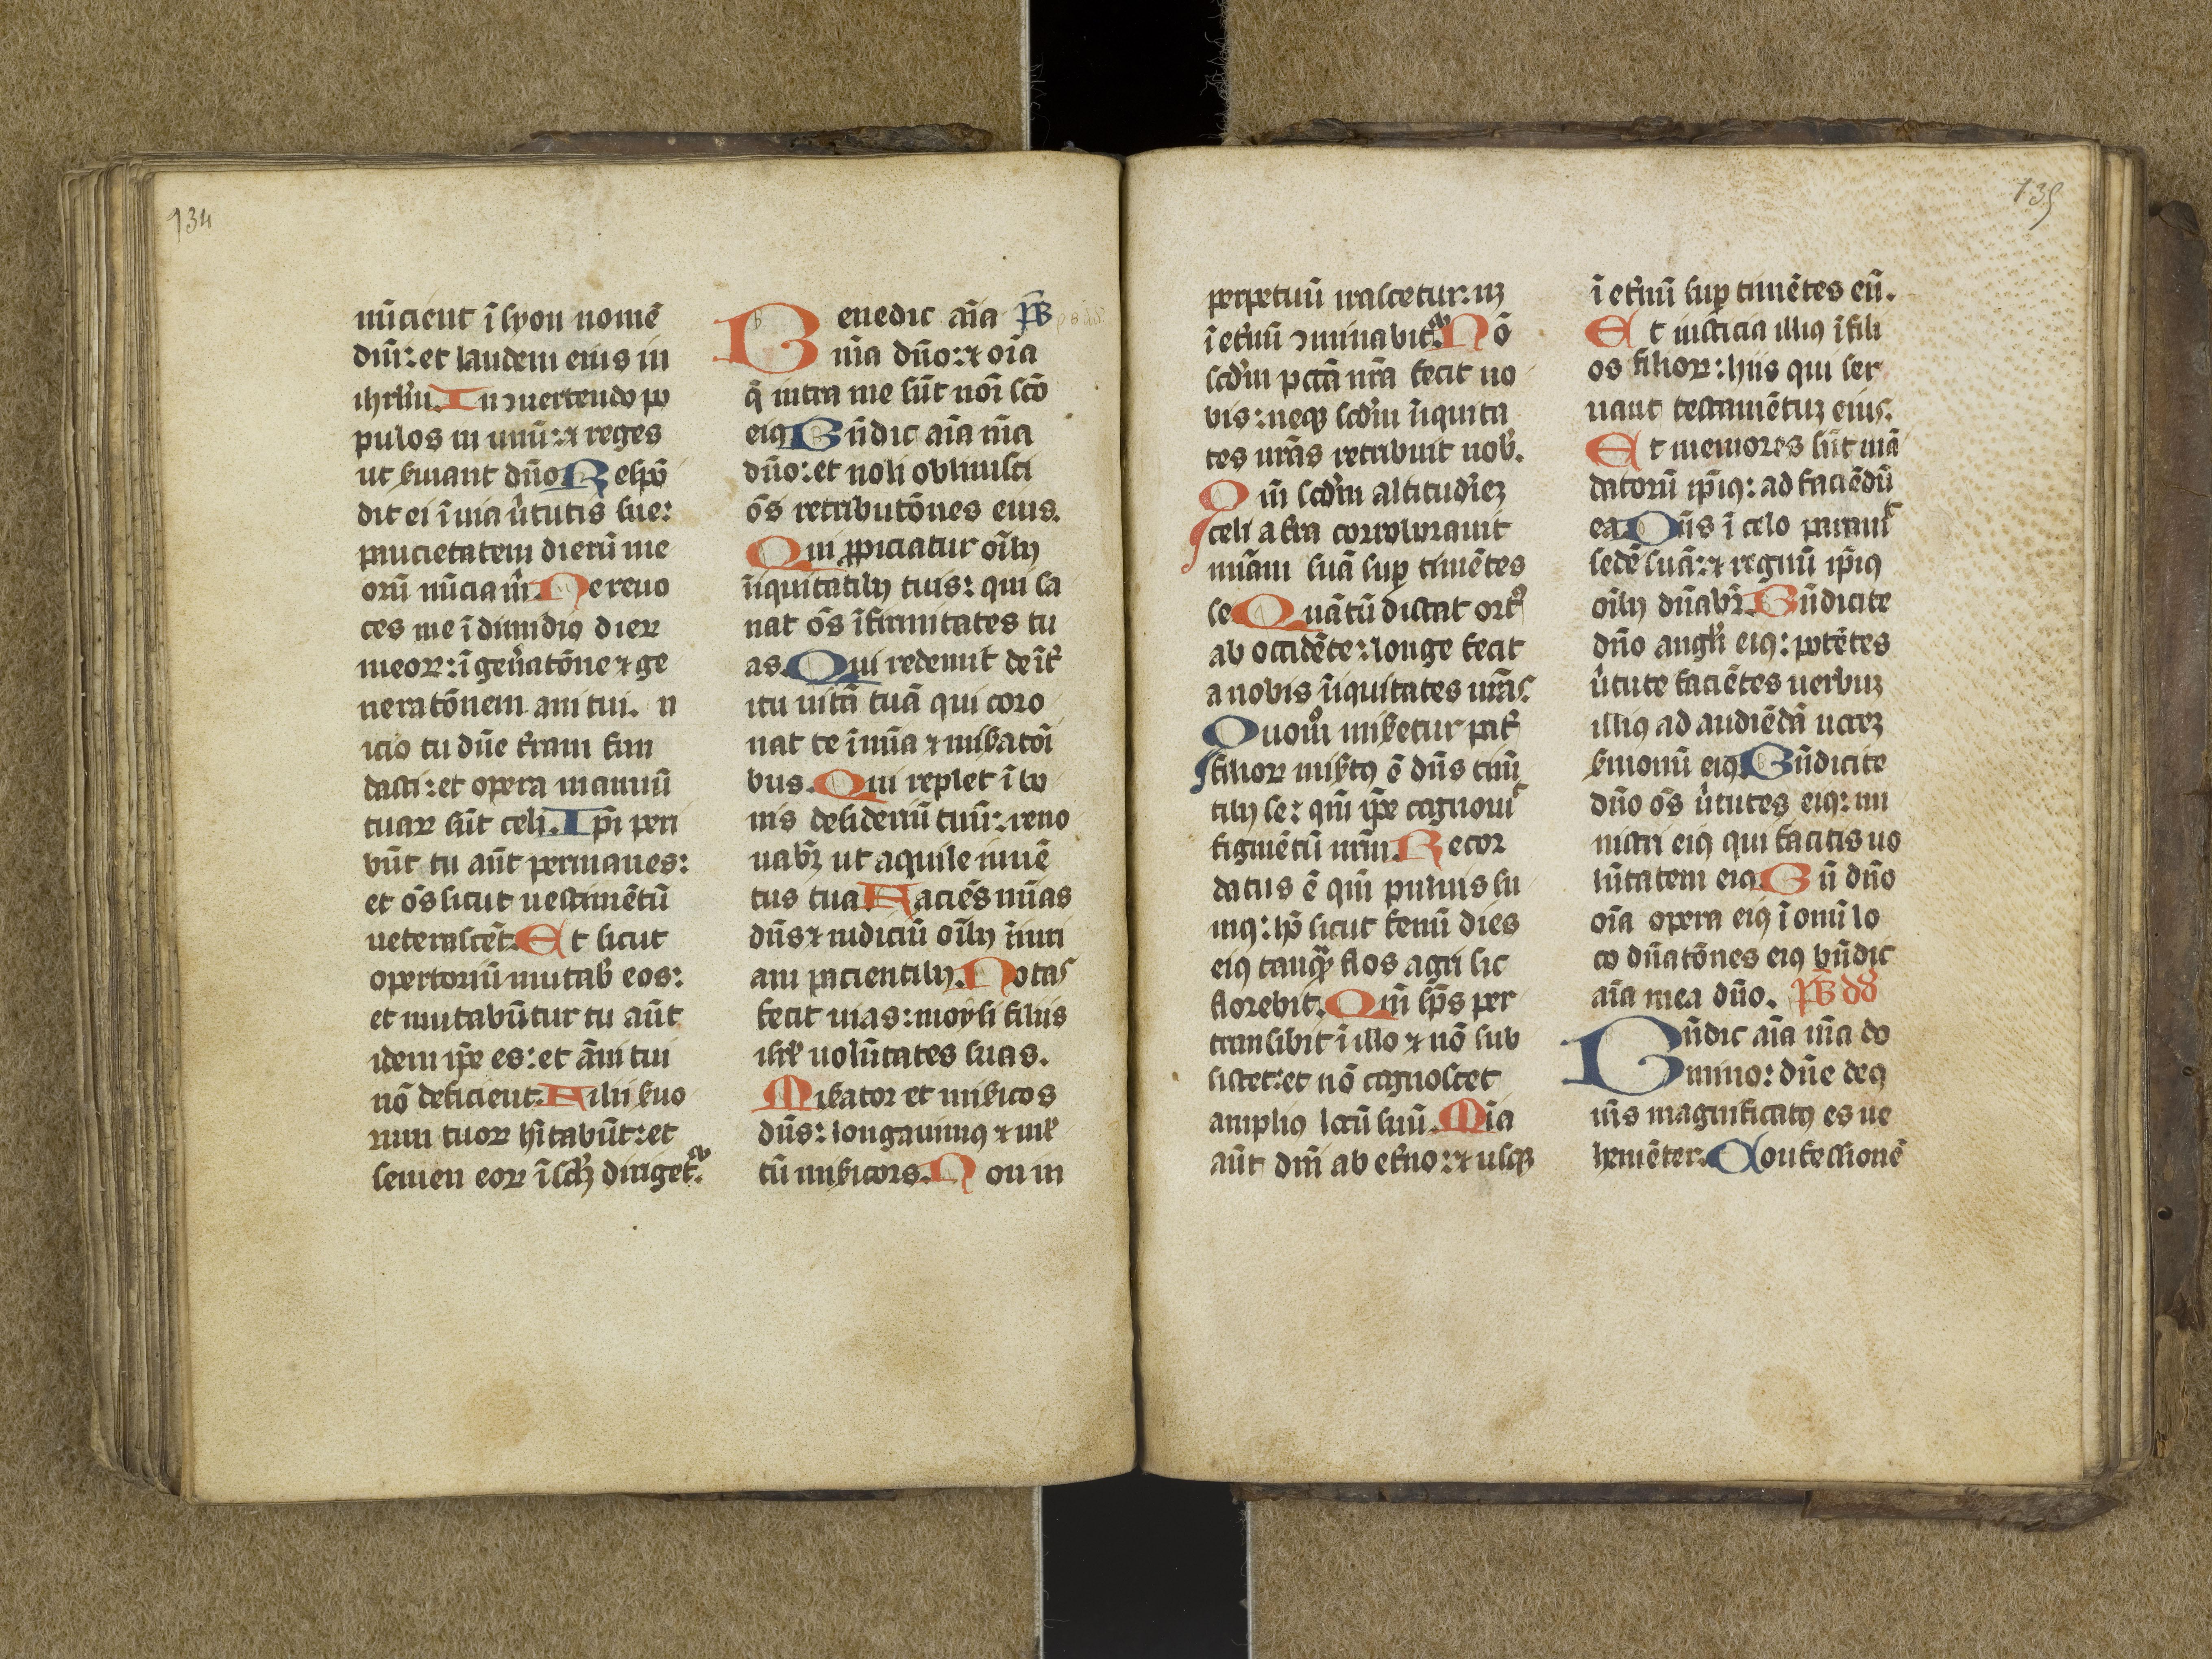 134
nūcient ī syon nomē
dñi: et laudem eius in
ihrłm. In ɔuertendo po
pulos in unū: ⁊ reges
ut s̄uiant dño. Respō
dit ei ī uia ůtutis sue:
paucietatem dierū me
orū nūcia m̄. Ne reuo
ces me ī dimidio dieꝝ
meoꝝ: ī gen̄atōne ⁊ ge
neratōnem ani tui. n
icio tu dn̄e t̄ram fun
dasti: et opera manuū
tuaꝝ sūt celi. Ip̄i peri
būt tu aūt permanes:
et ōs sicut uestimētū
ueterascēt. Et sicut
opertoriū mutab̄ eos:
et mutabūtur tu aūt
idem ip̄e es: et āni tui
nō deficient. Filii s̄uo
rum tuoꝝ hītabūt: et
semen eoꝝ ī sclꝫ dirigeť.
Benedic aīa p̄s
m̄a dño: ⁊ oīa
q̄ intra me sūt noī scō
eiꝰ Bn̄dic aīa m̄a
dño: et noli obliuisci
ōs retributōnes eius.
Qui ꝓpiciatur oībꝫ
īiquitatibꝫ tuis: qui sa
nat ōs īfirmitates tu
as. Qui redemit de īt̄
itu uitā tuā qui coro
nat te ī mīa ⁊ mis̄atoī
bus. Qui replet ī bo
nis desideriū tuū: reno
uabr̄ ut aquile iuuē
tus tua Faciēs mīas
dn̄s ⁊ iudiciū oībꝫ īiuri
am pacientibꝫ. Notas
fecit uias: moysi filiis
isrł uolūtates suas.
Mis̄ator et mis̄icos
dn̄s: longanimꝰ ⁊ mł
tū mis̄icors. Non in
135
perpetuū irascetur: nꝫ
ī et̄nū ɔminabiť. Nō
scd̄m pctā nr̄a fecit no
bis: neqꝫ scd̄m īiquita
tes nr̄as retribuit nob̄.
Qm̄ scd̄m altitudīeꝫ
celi a t̄ra corroborauit
mīam suā suꝑ timētes
se Quātū distat ortꝰ
ab occidēte: longe fecit
a nobis īiquitates nr̄as
Quomō mis̄etur pat̄
filioꝝ mis̄tꝰ ē dn̄s timē
tibꝫ se: qm̄ ip̄e cognouit
figmētū nr̄m. Recor
datus ē qm̄ puluis su
mꝰ: hō sicut fenū dies
eiꝰ tanqꝫ flos agri sic
florebit. Qm̄ sp̄s per
transibit ī illo ⁊ nō sub
sistet: et nō cognoscet
ampliꝰ locū suū. Mīa
aūt dn̄i ab et̄no: ⁊ usqꝫ
ī et̄nū suꝑ timētes eū.
Et iusticia illiꝰ ī fili
os filioꝝ: hiis qui ser
uant testamētuꝫ eius.
Et memores sūt mā
datorū ip̄iꝰ: ad faciēdū
ea Dn̄s ī celo parauit
sedē suā: ⁊ regnū ip̄iꝰ
oībꝫ dn̄abr̄. Bn̄dicite
dño angłi eiꝰ: potētes
ůtute faciētes uerbuꝫ
illiꝰ ad audiēdā uoceꝫ
s̄monū eiꝰ Bn̄dicite
dño ōs ůtutes eiꝰ: mi
nistri eiꝰ qui facitis uo
lūtatem eiꝰ. Bn̄ dño
oīa opera eiꝰ ī omī lo
co dn̄atōnes eiꝰ bn̄dic
aīa mea dño. p̄s dd
Bn̄dic aīa m̄a do
mino: dn̄e deꝰ
m̄s magnificatꝰ es ue
hemēter. Confessionē